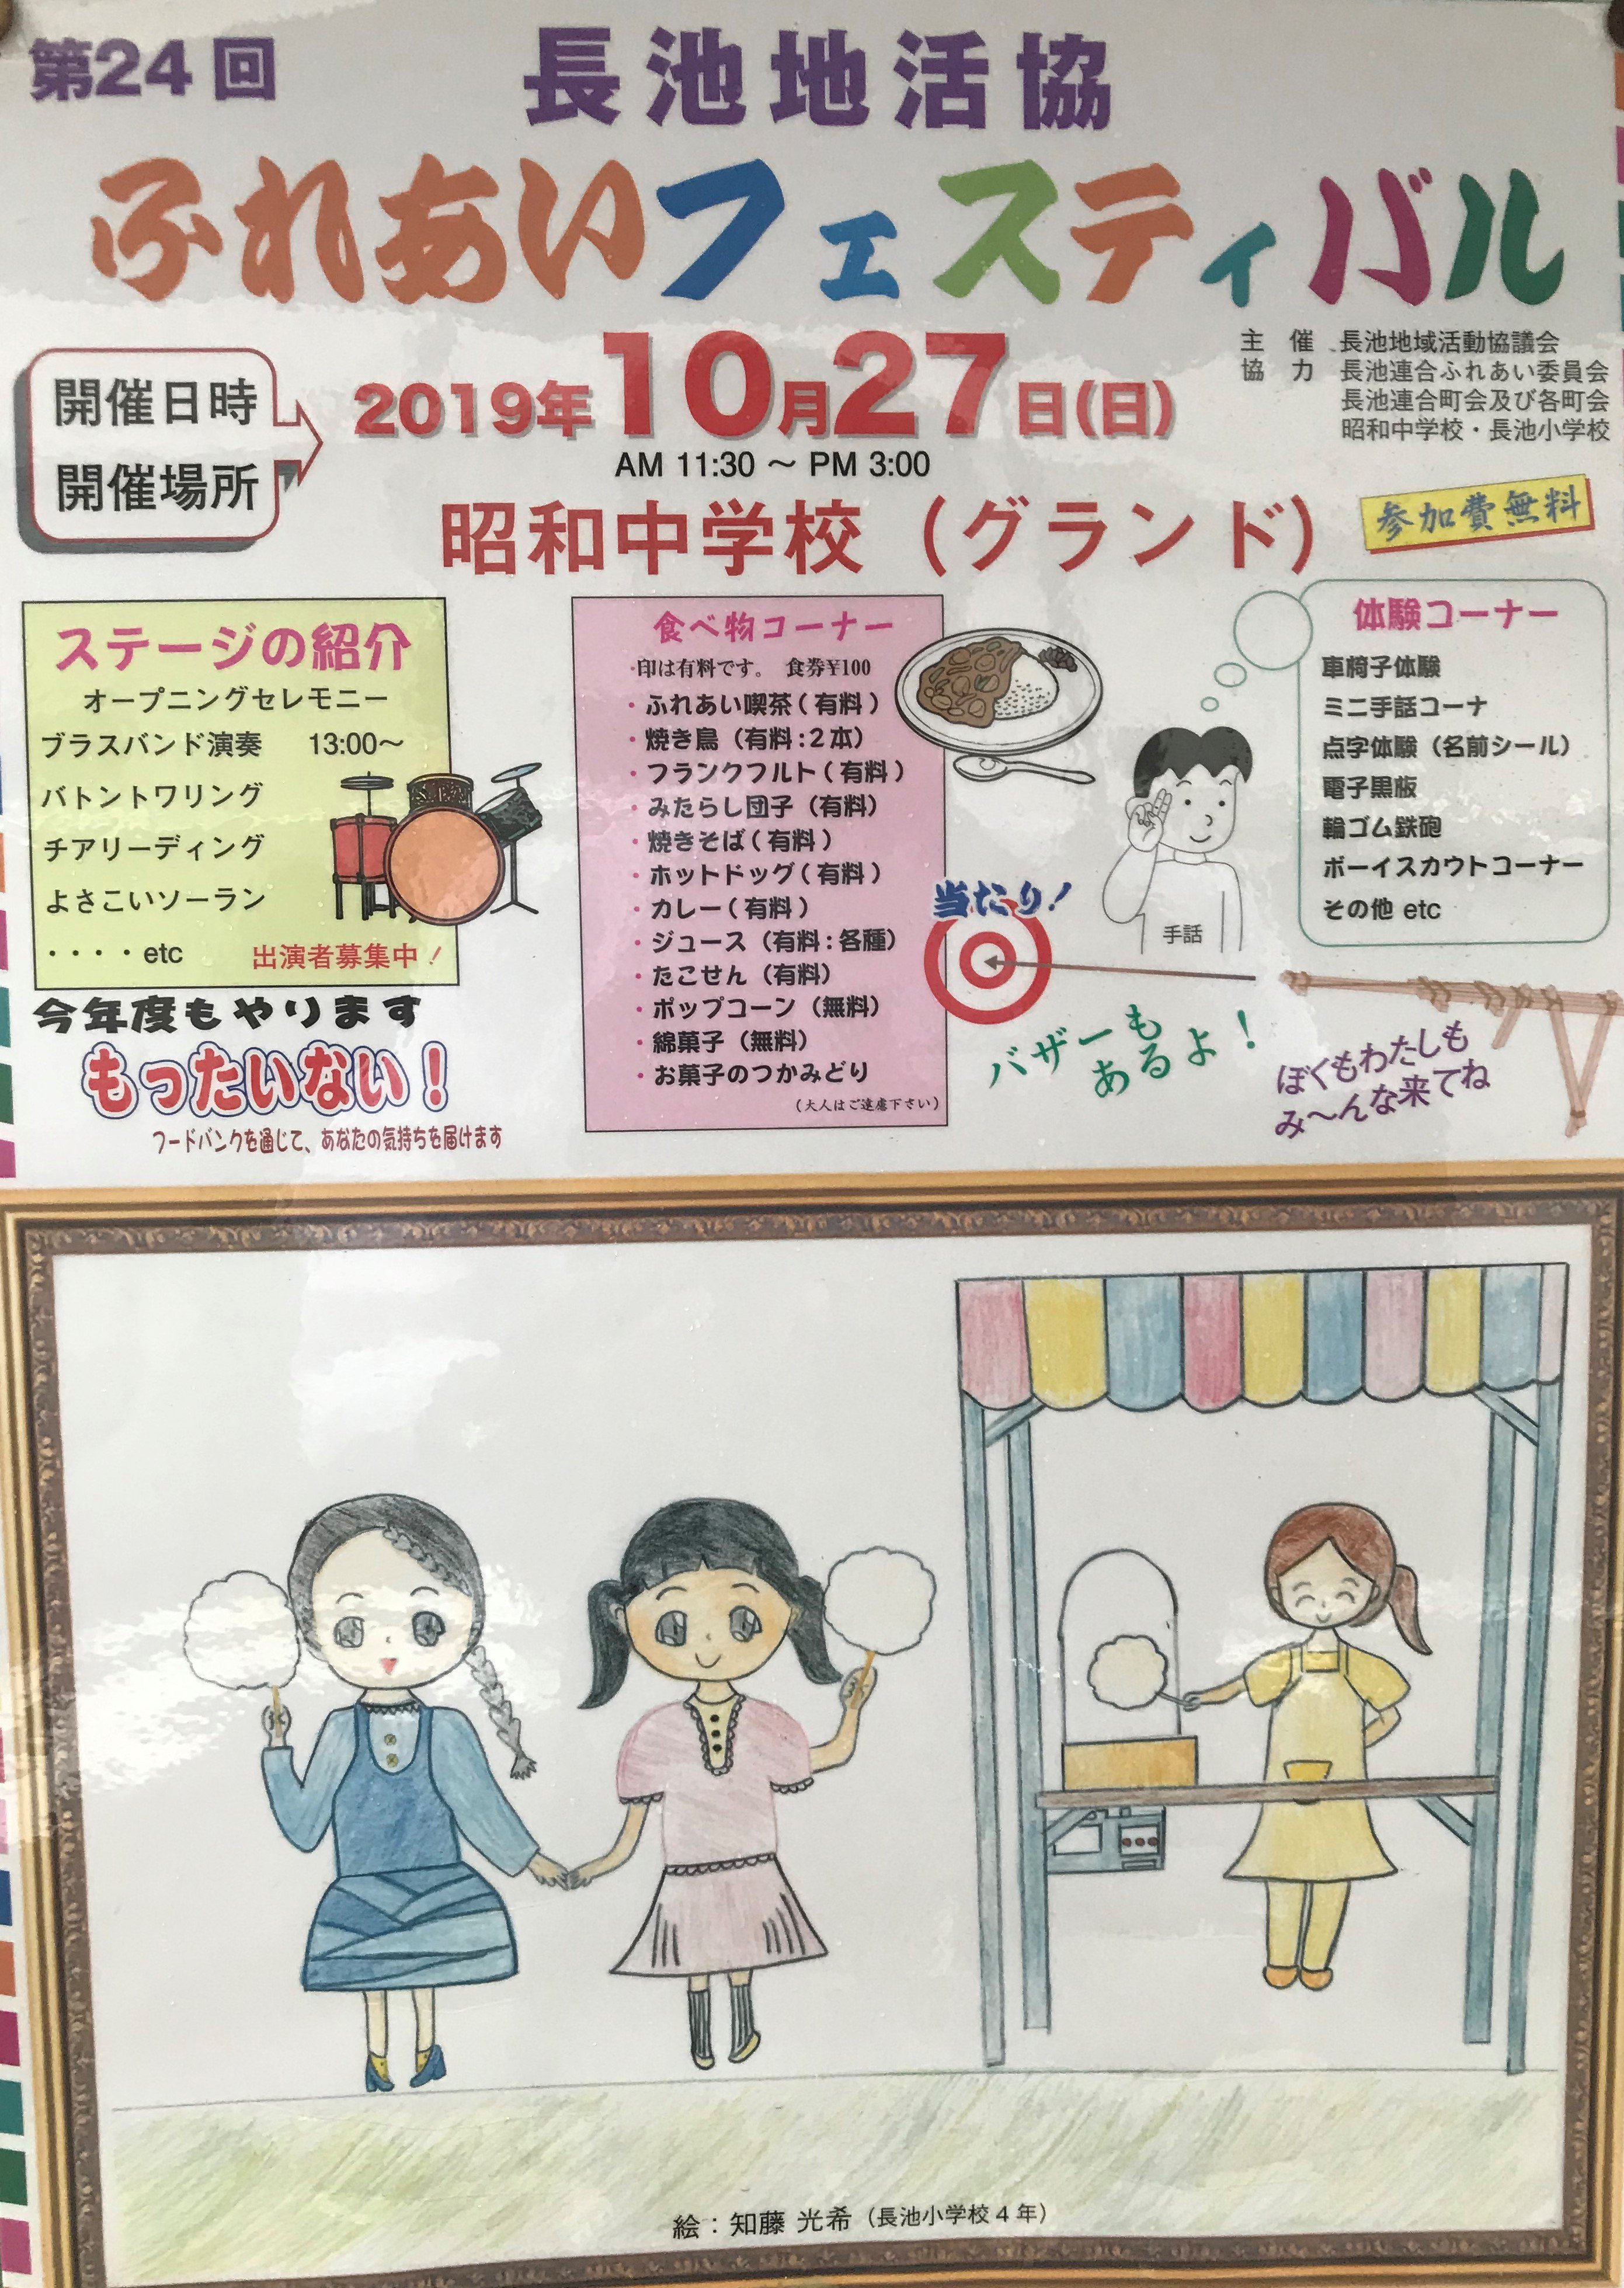 第24回
長池地活協
ふれあいフェスティバル
開催日時
開催場所
2019年10月27日(日)
AM 11:30 〜 PM 3:00
昭和中学校（グランド）
主 催 長池地域活動協議会
協 力 長池連合ふれあい委員会
長池連合町会及び各町会
昭和中学校・長池小学校
参加費無料
ステージの紹介
オープニングセレモニー
ブラスバンド演奏 13:00〜
バトントワリング
チアリーディング
よさこいソーラン
・・・・etc 出演者募集中！
今年度もやります
もったいない！
フードバンクを通じて、あなたの気持ちを届けます
食べ物コーナー
・印は有料です。 食券¥100
・ふれあい喫茶（有料）
・焼き鳥（有料：2本）
・フランクフルト（有料）
・みたらし団子（有料）
・焼きそば（有料）
・ホットドッグ（有料）
・カレー（有料）
・ジュース（有料：各種）
・たこせん（有料）
・ポップコーン（無料）
・綿菓子（無料）
・お菓子のつかみどり
（大人はご遠慮下さい）
体験コーナー
車椅子体験
ミニ手話コーナ
点字体験（名前シール）
電子黒板
輪ゴム鉄砲
ボーイスカウトコーナー
その他 etc
手話
当たり！
バザーも
あるよ！
ぼくもわたしも
み〜んな来てね
絵：知藤 光希（長池小学校４年）